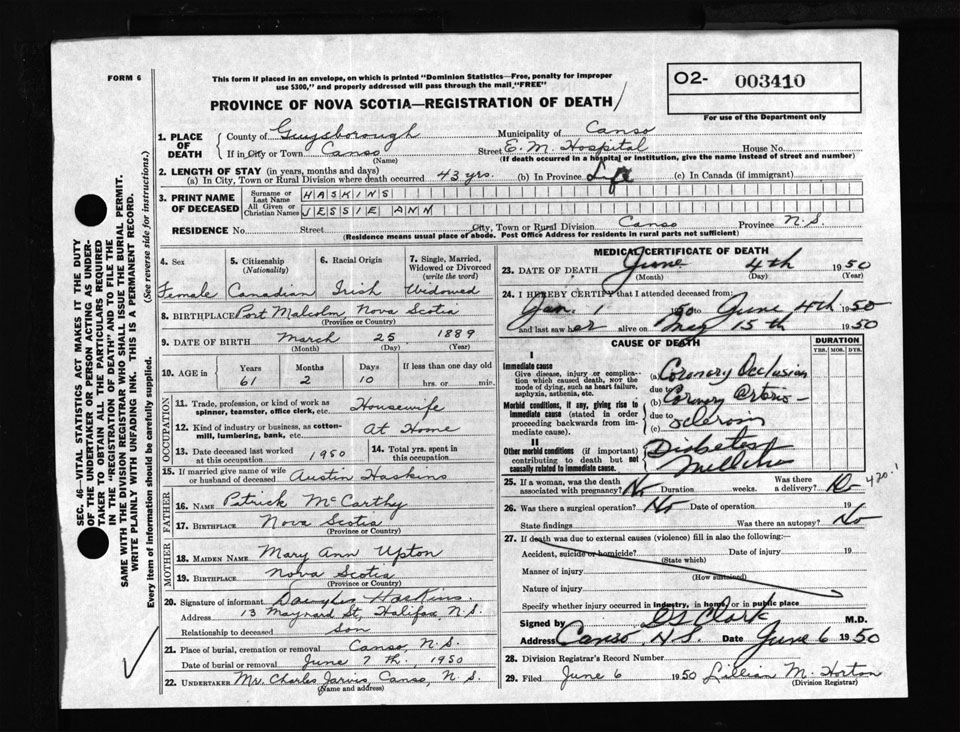 FORM 6
This form if placed in an envelope, on which is printed "Dominion Statistics—Free, penalty for improper
use $300," and properly addressed will pass through the mail, "FREE"
PROVINCE OF NOVA SCOTIA—REGISTRATION OF DEATH
O2- 003410
For use of the Department only
SEC. 46—VITAL STATISTICS ACT MAKES IT THE DUTY
OF THE UNDERTAKER OR PERSON ACTING AS UNDER-
TAKER TO OBTAIN ALL THE PARTICULARS REQUIRED
IN THE "REGISTRATION OF DEATH" AND TO FILE THE
SAME WITH THE DIVISION REGISTRAR WHO SHALL ISSUE THE BURIAL PERMIT.
WRITE PLAINLY WITH UNFADING INK. THIS IS A PERMANENT RECORD.
Every item of information should be carefully supplied. (See reverse side for instructions.)
1. PLACE OF DEATH
County of Guysborough Municipality of Canso
If in City or Town Canso Street E. M. Hospital House No.
(Name) (If death occurred in a hospital or institution, give the name instead of street and number)
2. LENGTH OF STAY (in years, months and days)
(a) In City, Town or Rural Division where death occurred 43 yrs. (b) In Province Life (c) In Canada (if immigrant)
3. PRINT NAME OF DECEASED
Surname or Last Name HASKINS
All Given or Christian Names JESSIE ANN
RESIDENCE No. Street City, Town or Rural Division Canso Province N.S.
(Residence means usual place of abode. Post Office Address for residents in rural parts not sufficient)
4. Sex
5. Citizenship (Nationality)
6. Racial Origin
7. Single, Married, Widowed or Divorced (write the word)
Female Canadian Irish Widowed
8. BIRTHPLACE Port Malcolm, Nova Scotia
(Province or Country)
9. DATE OF BIRTH March 25 1889
(Month) (Day) (Year)
10. AGE in Years Months Days If less than one day old
61 2 10 hrs. or min.
OCCUPATION
11. Trade, profession, or kind of work as
spinner, teamster, office clerk, etc. Housewife
12. Kind of industry or business, as cotton-
mill, lumbering, bank, etc. At Home
13. Date deceased last worked at this occupation 1950
14. Total yrs. spent in this occupation
15. If married give name of wife
or husband of deceased Austin Haskins
FATHER
16. NAME Patrick McCarthy
17. BIRTHPLACE Nova Scotia
(Province or Country)
MOTHER
18. MAIDEN NAME Mary Ann Upton
19. BIRTHPLACE Nova Scotia
(Province or Country)
20. Signature of informant Haskins.
Address 13 Maynard St, Halifax, N.S.
Relationship to deceased son
21. Place of burial, cremation or removal Canso, N.S.
Date of burial or removal June 7th, 1950
22. UNDERTAKER Mr. Charles Jarvis, Canso, N.S.
(Name and address)
MEDICAL CERTIFICATE OF DEATH
23. DATE OF DEATH June 4th 1950
(Month) (Day) (Year)
24. I HEREBY CERTIFY that I attended deceased from:
Jan. 1 1950 to June 4th 1950
and last saw her alive on May 15th 1950
CAUSE OF DEATH
DURATION
YRS. MOS. DYS.
I
Immediate cause
Give disease, injury or complica-
tion which caused death, NOT the
mode of dying, such as heart failure,
asphyxia, asthenia, etc.
(a) Coronary Occlusion
due to
Morbid conditions, if any, giving rise to
immediate cause (stated in order
proceeding backwards from im-
mediate cause).
(b) Coronary Arterio-
due to sclerosis
(c)
II
Other morbid conditions (if important)
contributing to death but not
causally related to immediate cause.
Diabetes
Mellitus
25. If a woman, was the death
associated with pregnancy? No Duration weeks. Was there
a delivery? No
420.1
26. Was there a surgical operation? No Date of operation 19
State findings Was there an autopsy? No
27. If death was due to external causes (violence) fill in also the following:
Accident, suicide or homicide? Date of injury 19
(State which)
Manner of injury
(How sustained)
Nature of injury
Specify whether injury occurred in industry, in home, or in public place
Signed by Clark M.D.
Address Canso N.S. Date June 6 1950
28. Division Registrar's Record Number
29. Filed June 6 1950 Lillian M. Horton
(Division Registrar)